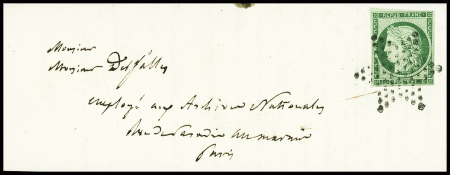 REPUB. FRANC.
Monsieur
Monsieur Desfalles
employé aux Archives Nationales
Rue de Paradis au marais
Paris